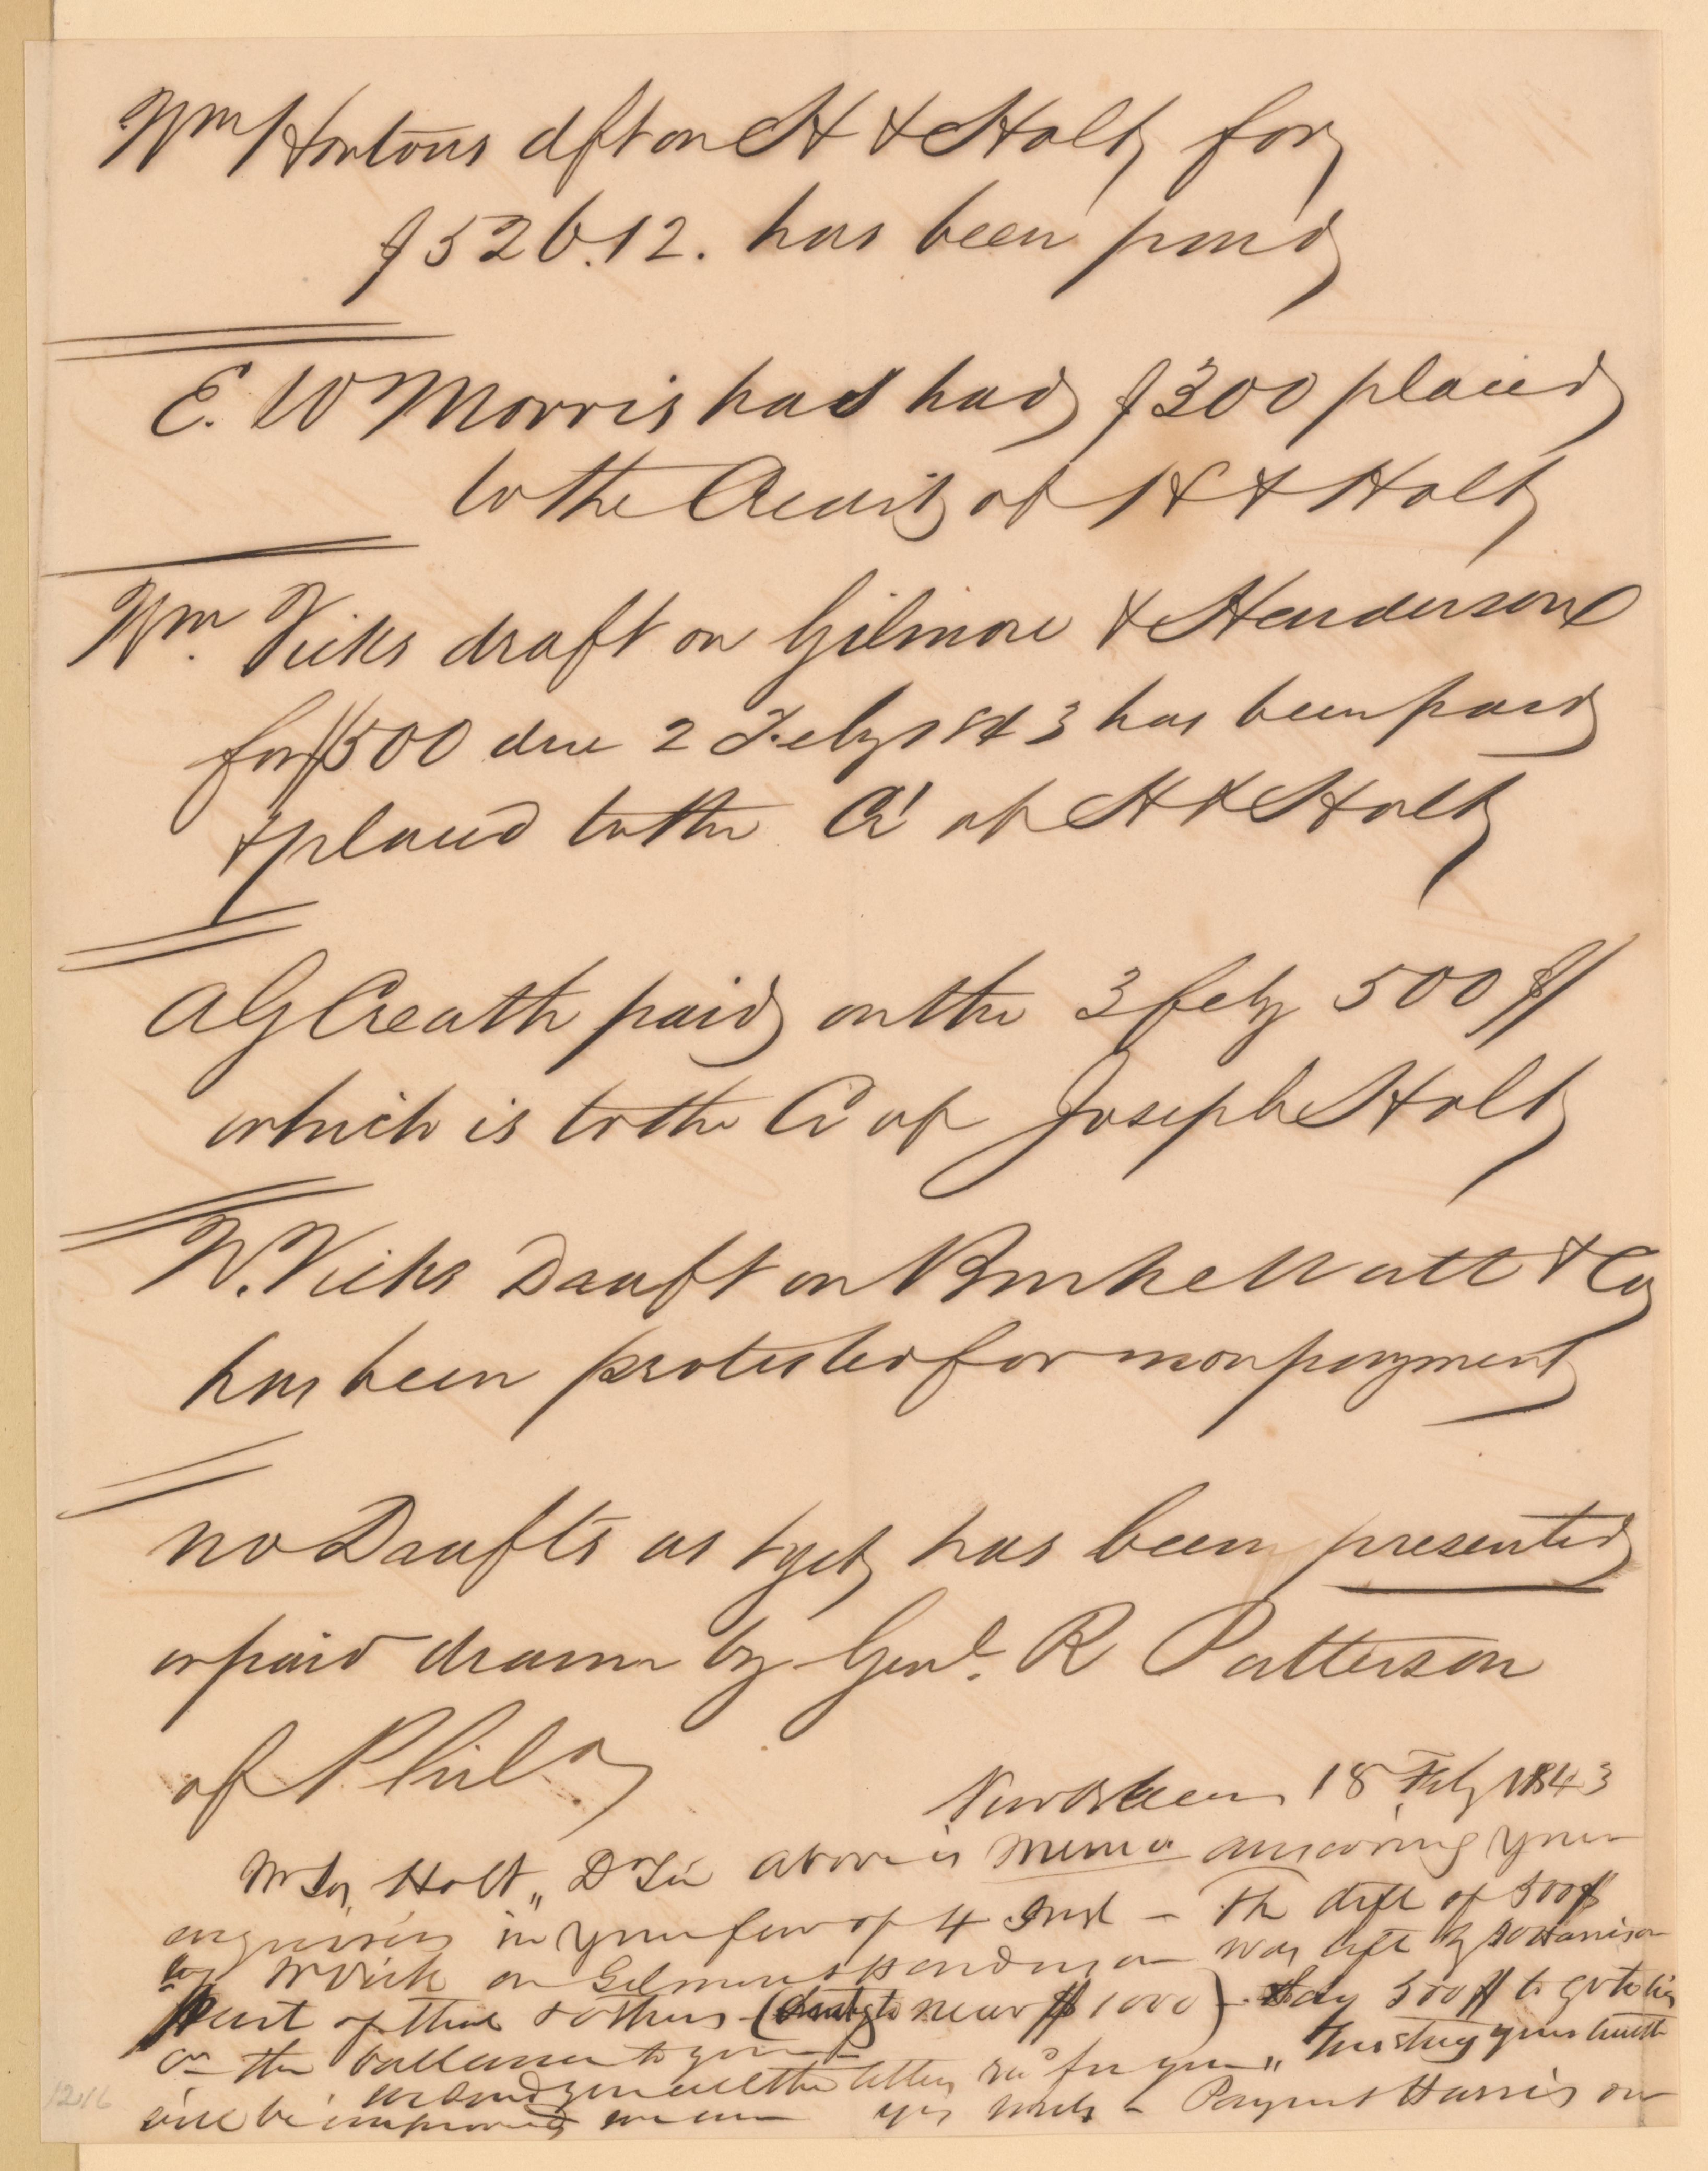 Wm Hortons dft on H & Holt for
$526.12. has been paid
E. W Morris has had $300 placed
to the Credit of H & Holt
Wm. Vicks draft on Gilmore & Henderson
for $500 due 2 Feby 1843 has been paid
& placed to the Cr of H & Holt
A G Creath paid on the 3 feby 500$
which is to the Cr of Joseph Holt
W. Vicks Dauft on Burke Watt & Co
has been protested for nonpayment
no Daufts as yet has been presented
or paid drawn by Genl. R Patterson
of Phila
New Orleans 18 Feby 1843
Mr Jos Holt,, Dr Sir above is memo answering your
enquiries in your favor of 4 Inst - The dft of 500$
by W Vick on Gilmore & Henderson was left by Harrison
part of that & others ( near $1000) - Say 500$ to go to his
Cr the ballance to your Trusting your health
we send you all the letters for you,,
will be improved we are yrs truly - Payne & Harrison
1216